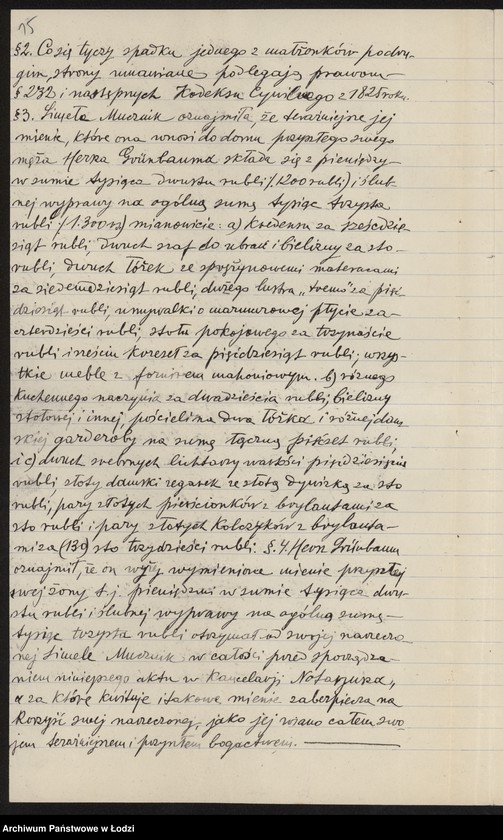 15
§2. Co się tyczy spadku jednego z małżonków po dru-
gim, strony umawiane podlegają prawom
§ 232 i następnych Kodeksu Cywilnego z 1825 roku.
§3. Simela Mucznik oznajmiła, że teraźniejsze jej
mienie, które ona wnosi do domu przyszłego swego
męża Herza Grünbauma składa się z pieniędzy
w sumie tysiąca dwustu rubli /1.200 rubli/) i ślub-
nej wyprawy na ogólną sumę tysiąc trzysta
rubli /1.300 rs) mianowicie: a) kredensu za sześćdzie-
siąt rubli, dwuch szaf do ubrań i bielizny za sto
rubli, dwuch łóżek ze sprężynowemi materacami
za siedemdziesiąt rubli, dużego lustra "tremo" za pięć
dziesiąt rubli, umywalki o marmurowej płycie za
czterdzieści rubli, stołu pokojowego za trzynaście
rubli i sześciu krzeseł za pięćdziesiąt rubli; wszy-
tkie meble z fornirem mahoniowym. b) różnego
kuchennego naczynia za dwadzieścia rubli, bielizny
stołowej i innej, pościeli na dwa łóżka i różnej dam
skiej garderoby na sumę łączną pięćset rubli,
i c) dwuch srebrnych lichtarzy wartości pięćdziesięciu
rubli, złoty damski zegarek ze złotą dywizką za sto
rubli, pary złotych pierścionków z brylantami za
sto rubli i pary złotych kolczyków z brylanta-
mi za (130) sto trzydzieści rubli. §.4. Herz Grünbaum
oznajmił, że on wyżej wymienione mienie przyszłej
swej żony t.j. pieniędzmi w sumie tysiąca dwu-
stu rubli i ślubnej wyprawy na ogólną sumę
tysiąc trzysta rubli otrzymał od swojej narzeczo
nej Simele Mucznik w całości przed sporządza-
niem niniejszego aktu w Kancelarji Notarjusza,
a za które kwituje i takowe mienie zabezpiecza na
korzyść swej narzeczonej, jako jej wiano całem swo
jem teraźniejszem i przyszłem bogactwem.
Archiwum Państwowe w Łodzi